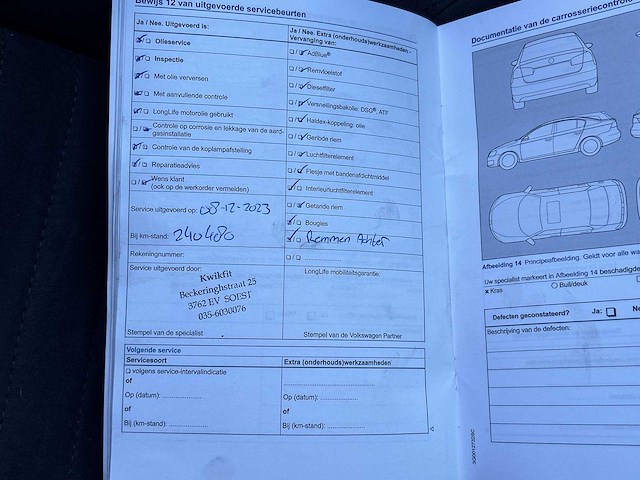 Bewijs 12 van uitgevoerde servicebeurten
Ja / Nee. Uitgevoerd is:
Olieservice
Inspectie
Met olie verversen
Met aanvullende controle
LongLife motorolie gebruikt
Controle op corrosie en lekkage van de aard-
gasinstallatie
Controle van de koplampafstelling
Reparatieadvies
Wens klant
(ook op de werkorder vermelden)
Service uitgevoerd op: 08-12-2023
Bij km-stand: 240480
Rekeningnummer:
Service uitgevoerd door:
Kwikfit
Beckeringhstraat 25
3762 EV SOEST
035-6030076
Stempel van de specialist
Ja / Nee. Extra (onderhouds)werkzaamheden -
Vervanging van:
AdBlue®
Remvloeistof
Dieselfilter
Versnellingsbakolie: DSG®, ATF
Haldex-koppeling: olie
Geribde riem
Luchtfilterelement
Flesje met bandenafdichtmiddel
Interieurluchtfilterelement
Getande riem
Bougies
Remmen Achter
LongLife mobiliteitsgarantie:
Stempel van de Volkswagen Partner
Volgende service
Servicesoort
volgens service-intervalindicatie
of
Op (datum):
of
Bij (km-stand):
Extra (onderhouds)werkzaamheden
Op (datum):
of
Bij (km-stand):
Documentatie van de carrosseriecontrole
Afbeelding 14 Principeafbeelding. Geldt voor alle
Uw specialist markeert in Afbeelding 14
x Kras
Buil/deuk
Defecten geconstateerd? Ja:
Beschrijving van de defecten: